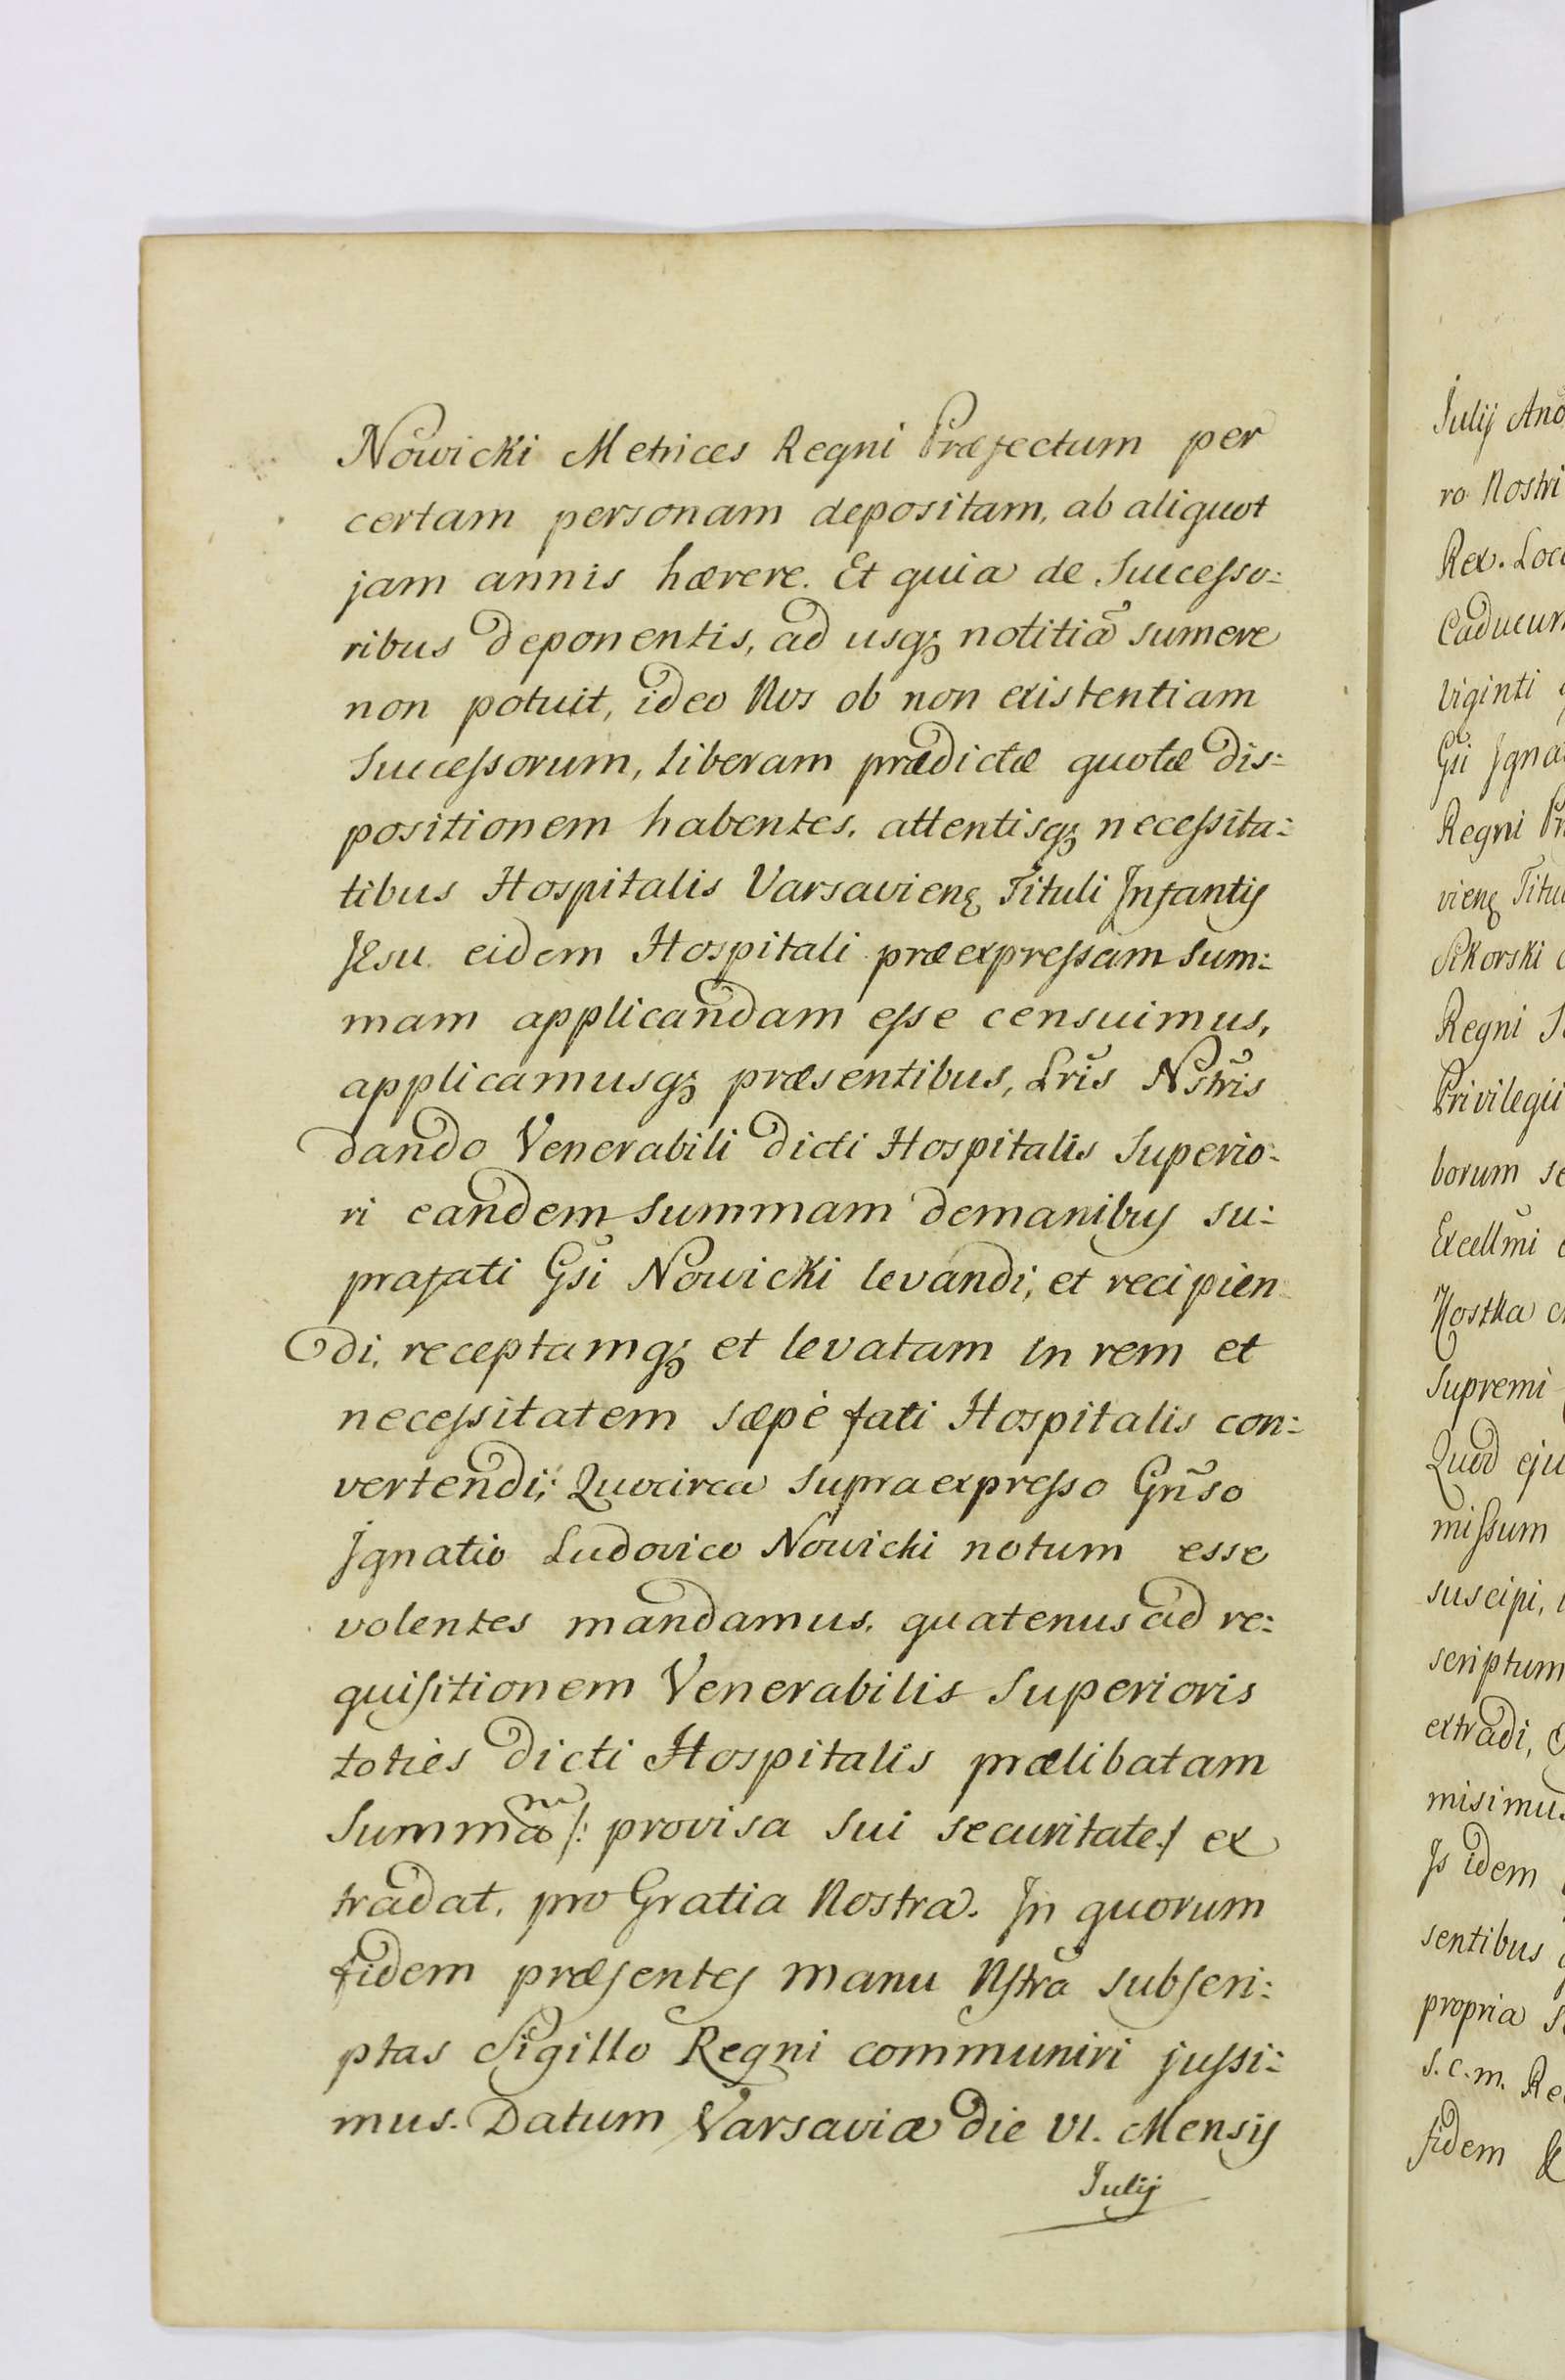 Nowicki Metrices Regni Præfectum per
certam personam depositam, ab aliquot
jam annis hærere. Et quia de Successo:
ribus deponentis, ad usq; notitiã sumere
non potuit, ideo Nos ob non existentiam
Successorum, liberam prædictæ quotæ dis:
positionem habentes, attentisq; necessita:
tibus Hospitalis Varsavienę Tituli Infantis
Jesu eidem Hospitali præexpressam sum:
mam applicandam esse censuimus,
applicamusq; præsentibus, Lris̃ Nstris̃
dando Venerabili dicti Hospitalis Superio:
ri eandem summam demanibus su:
prafati Gsĩ Nowicki levandi, et recipien
di, receptamq; et levatam in rem et
necessitatem sæpè fati Hospitalis con:
vertendi; Quocirca supraexpresso Gñso
Ignatio Ludovico Nowicki notum esse
volentes mandamus, quatenus ad re:
quisitionem Venerabilis Superioris
toties dicti Hospitalis prælibatam
Summam /: provisa sui securitate :/ ex
tradat, pro Gratia Nostra. In quorum
fidem præsentes manu Nstrã subscri:
ptas Sigillo Regni communiri jussi:
mus. Datum Varsaviæ die VI. Mensis
Julij
Julij Ano
ro Nostri
Rex. Loc
Caducum
viginti
Gsĩ Igna
Regni Pr
vienę Titu
Sikorski
Regni S
Privilegii
borum se
Excellmĩ
Kostka
Supremi
Quod eju
missum
suscipi,
scriptum
extradi,
misimus
Is idem
sentibus
propria S
S.C.M. Re
fidem &